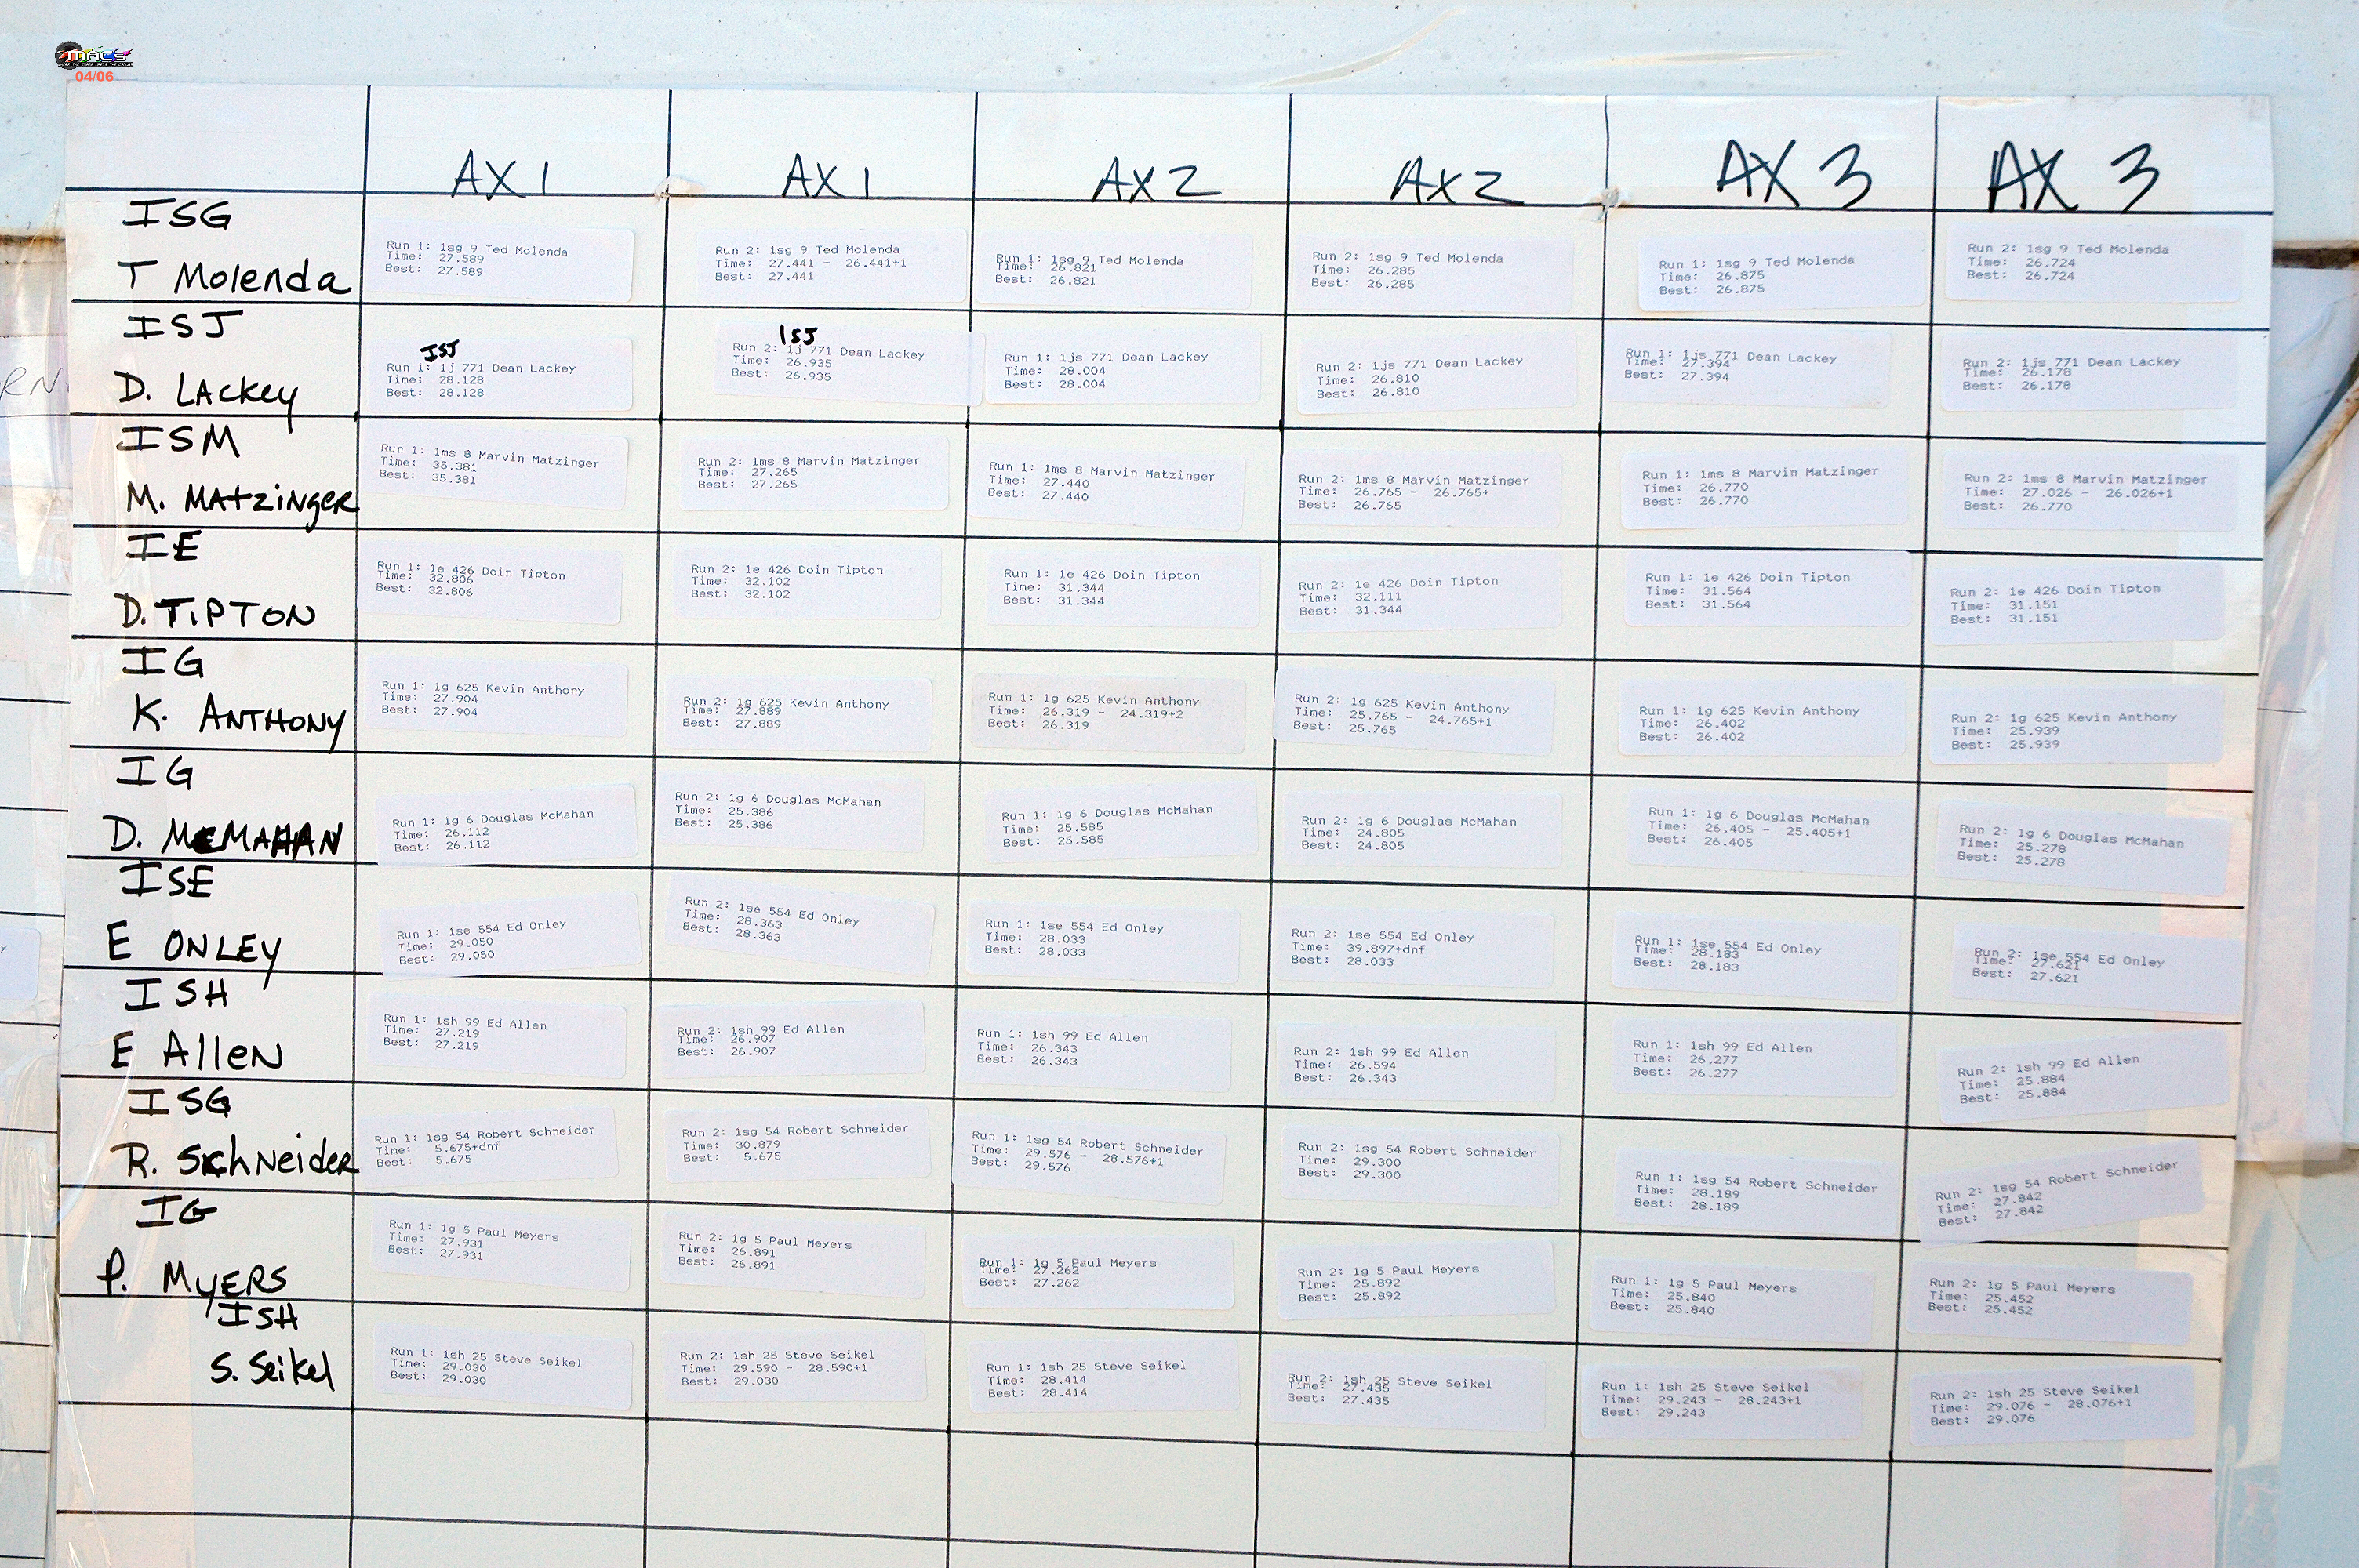 04/06
AX 1 AX 1 AX 2 AX 2 AX 3 AX 3
ISG
T Molenda
Run 1: 1sg 9 Ted Molenda
Time: 27.589
Best: 27.589
Run 2: 1sg 9 Ted Molenda
Time: 27.441 - 26.441+1
Best: 27.441
Run 1: 1sg 9 Ted Molenda
Time: 26.821
Best: 26.821
Run 2: 1sg 9 Ted Molenda
Time: 26.285
Best: 26.285
Run 1: 1sg 9 Ted Molenda
Time: 26.875
Best: 26.875
Run 2: 1sg 9 Ted Molenda
Time: 26.724
Best: 26.724
ISJ
D. Lackey
ISJ
Run 1: 1j 771 Dean Lackey
Time: 28.128
Best: 28.128
1SJ
Run 2: 1j 771 Dean Lackey
Time: 26.935
Best: 26.935
Run 1: 1js 771 Dean Lackey
Time: 28.004
Best: 28.004
Run 2: 1js 771 Dean Lackey
Time: 26.810
Best: 26.810
Run 1: 1js 771 Dean Lackey
Time: 27.394
Best: 27.394
Run 2: 1js 771 Dean Lackey
Time: 26.178
Best: 26.178
ISM
M. Matzinger
Run 1: 1ms 8 Marvin Matzinger
Time: 35.381
Best: 35.381
Run 2: 1ms 8 Marvin Matzinger
Time: 27.265
Best: 27.265
Run 1: 1ms 8 Marvin Matzinger
Time: 27.440
Best: 27.440
Run 2: 1ms 8 Marvin Matzinger
Time: 26.765 - 26.765+
Best: 26.765
Run 1: 1ms 8 Marvin Matzinger
Time: 26.770
Best: 26.770
Run 2: 1ms 8 Marvin Matzinger
Time: 27.026 - 26.026+1
Best: 26.770
IE
D. TIPTON
Run 1: 1e 426 Doin Tipton
Time: 32.806
Best: 32.806
Run 2: 1e 426 Doin Tipton
Time: 32.102
Best: 32.102
Run 1: 1e 426 Doin Tipton
Time: 31.344
Best: 31.344
Run 2: 1e 426 Doin Tipton
Time: 32.111
Best: 31.344
Run 1: 1e 426 Doin Tipton
Time: 31.564
Best: 31.564
Run 2: 1e 426 Doin Tipton
Time: 31.151
Best: 31.151
IG
K. ANTHONY
Run 1: 1g 625 Kevin Anthony
Time: 27.904
Best: 27.904
Run 2: 1g 625 Kevin Anthony
Time: 27.889
Best: 27.889
Run 1: 1g 625 Kevin Anthony
Time: 26.319 - 24.319+2
Best: 26.319
Run 2: 1g 625 Kevin Anthony
Time: 25.765 - 24.765+1
Best: 25.765
Run 1: 1g 625 Kevin Anthony
Time: 26.402
Best: 26.402
Run 2: 1g 625 Kevin Anthony
Time: 25.939
Best: 25.939
IG
D. McMAHAN
Run 1: 1g 6 Douglas McMahan
Time: 26.112
Best: 26.112
Run 2: 1g 6 Douglas McMahan
Time: 25.386
Best: 25.386
Run 1: 1g 6 Douglas McMahan
Time: 25.585
Best: 25.585
Run 2: 1g 6 Douglas McMahan
Time: 24.805
Best: 24.805
Run 1: 1g 6 Douglas McMahan
Time: 26.405 - 25.405+1
Best: 26.405
Run 2: 1g 6 Douglas McMahan
Time: 25.278
Best: 25.278
ISE
E ONLEY
Run 1: 1se 554 Ed Onley
Time: 29.050
Best: 29.050
Run 2: 1se 554 Ed Onley
Time: 28.363
Best: 28.363
Run 1: 1se 554 Ed Onley
Time: 28.033
Best: 28.033
Run 2: 1se 554 Ed Onley
Time: 39.897+dnf
Best: 28.033
Run 1: 1se 554 Ed Onley
Time: 28.183
Best: 28.183
Run 2: 1se 554 Ed Onley
Time: 27.621
Best: 27.621
ISH
E Allen
Run 1: 1sh 99 Ed Allen
Time: 27.219
Best: 27.219
Run 2: 1sh 99 Ed Allen
Time: 26.907
Best: 26.907
Run 1: 1sh 99 Ed Allen
Time: 26.343
Best: 26.343
Run 2: 1sh 99 Ed Allen
Time: 26.594
Best: 26.343
Run 1: 1sh 99 Ed Allen
Time: 26.277
Best: 26.277
Run 2: 1sh 99 Ed Allen
Time: 25.884
Best: 25.884
ISG
R. Schneider
Run 1: 1sg 54 Robert Schneider
Time: 5.675+dnf
Best: 5.675
Run 2: 1sg 54 Robert Schneider
Time: 30.879
Best: 5.675
Run 1: 1sg 54 Robert Schneider
Time: 29.576 - 28.576+1
Best: 29.576
Run 2: 1sg 54 Robert Schneider
Time: 29.300
Best: 29.300
Run 1: 1sg 54 Robert Schneider
Time: 28.189
Best: 28.189
Run 2: 1sg 54 Robert Schneider
Time: 27.842
Best: 27.842
IG
P. MYERS
Run 1: 1g 5 Paul Meyers
Time: 27.931
Best: 27.931
Run 2: 1g 5 Paul Meyers
Time: 26.891
Best: 26.891
Run 1: 1g 5 Paul Meyers
Time: 27.262
Best: 27.262
Run 2: 1g 5 Paul Meyers
Time: 25.892
Best: 25.892
Run 1: 1g 5 Paul Meyers
Time: 25.840
Best: 25.840
Run 2: 1g 5 Paul Meyers
Time: 25.452
Best: 25.452
ISH
S. Seikel
Run 1: 1sh 25 Steve Seikel
Time: 29.030
Best: 29.030
Run 2: 1sh 25 Steve Seikel
Time: 29.590 - 28.590+1
Best: 29.030
Run 1: 1sh 25 Steve Seikel
Time: 28.414
Best: 28.414
Run 2: 1sh 25 Steve Seikel
Time: 27.435
Best: 27.435
Run 1: 1sh 25 Steve Seikel
Time: 29.243 - 28.243+1
Best: 29.243
Run 2: 1sh 25 Steve Seikel
Time: 29.076 - 28.076+1
Best: 29.076